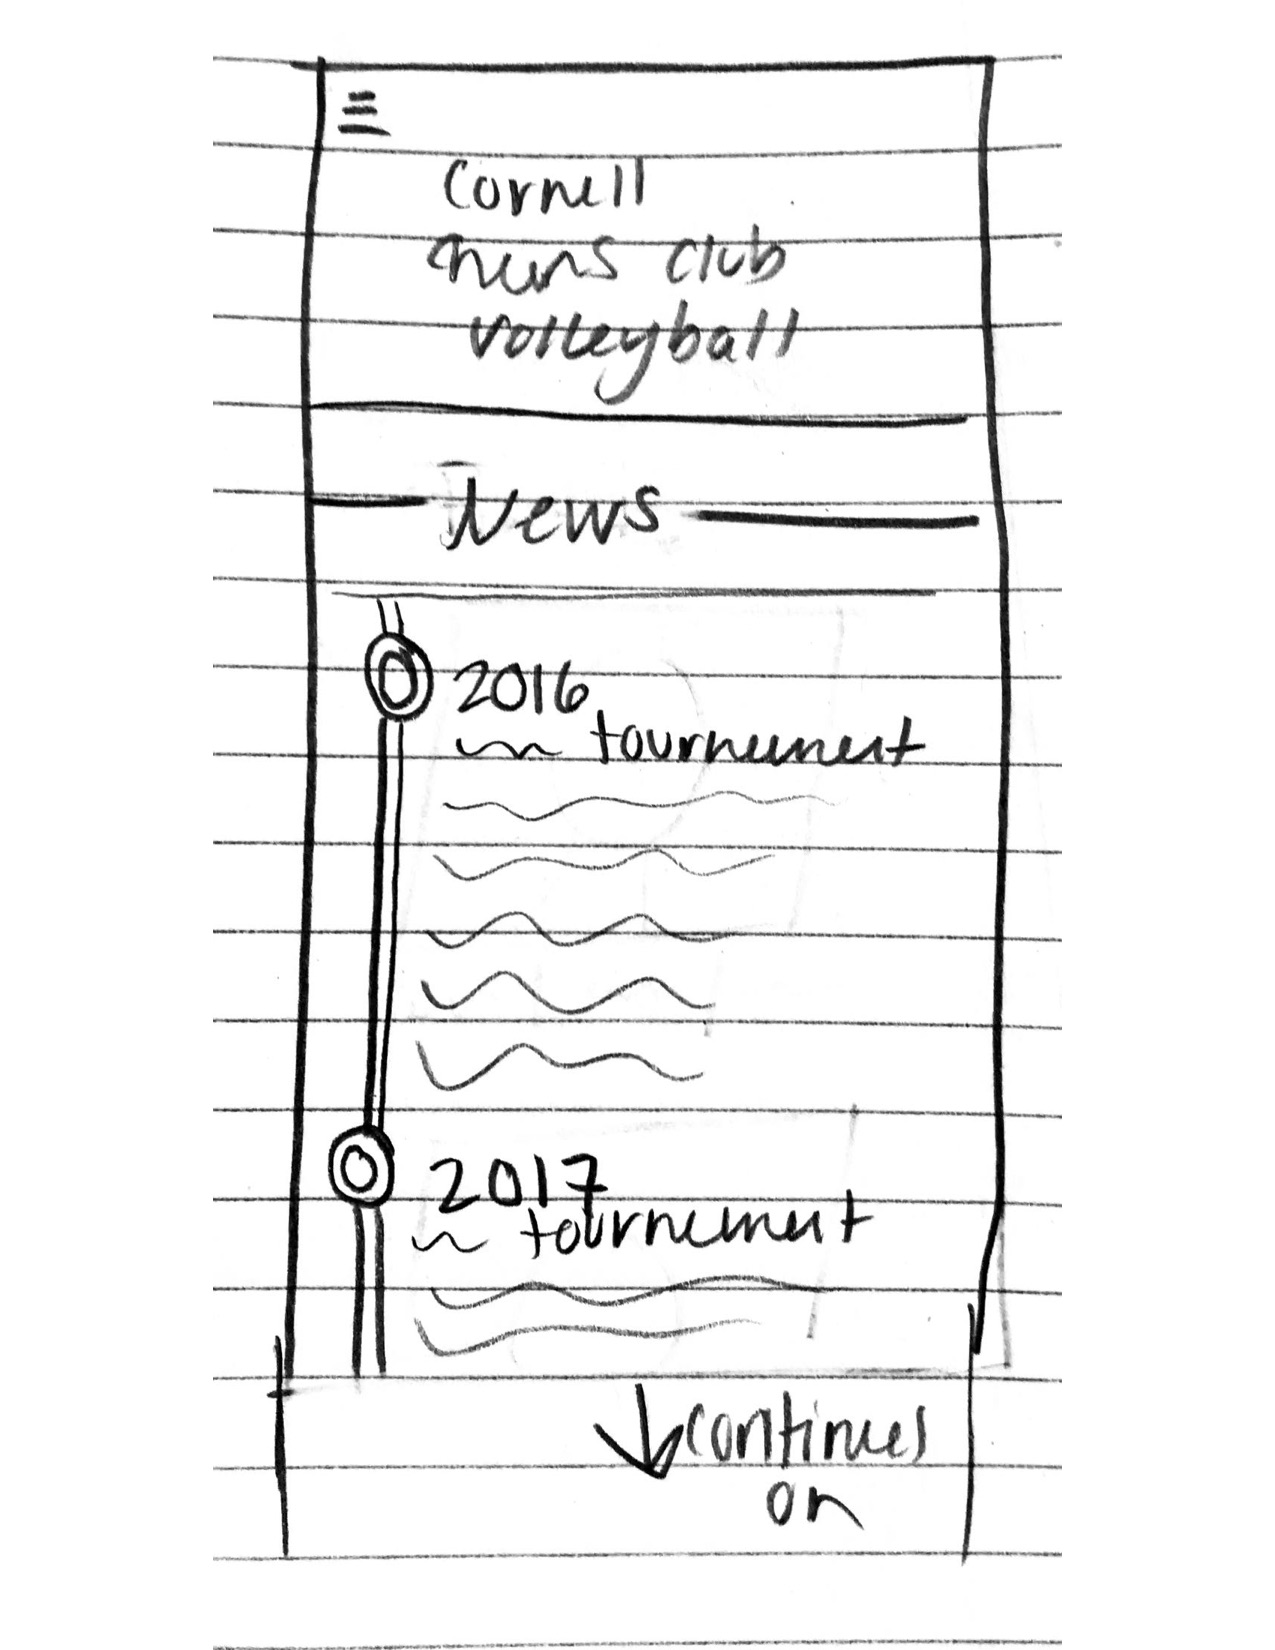 Cornell
mens club
volleyball
News
2016
tournement
2017
tournement
continues
on